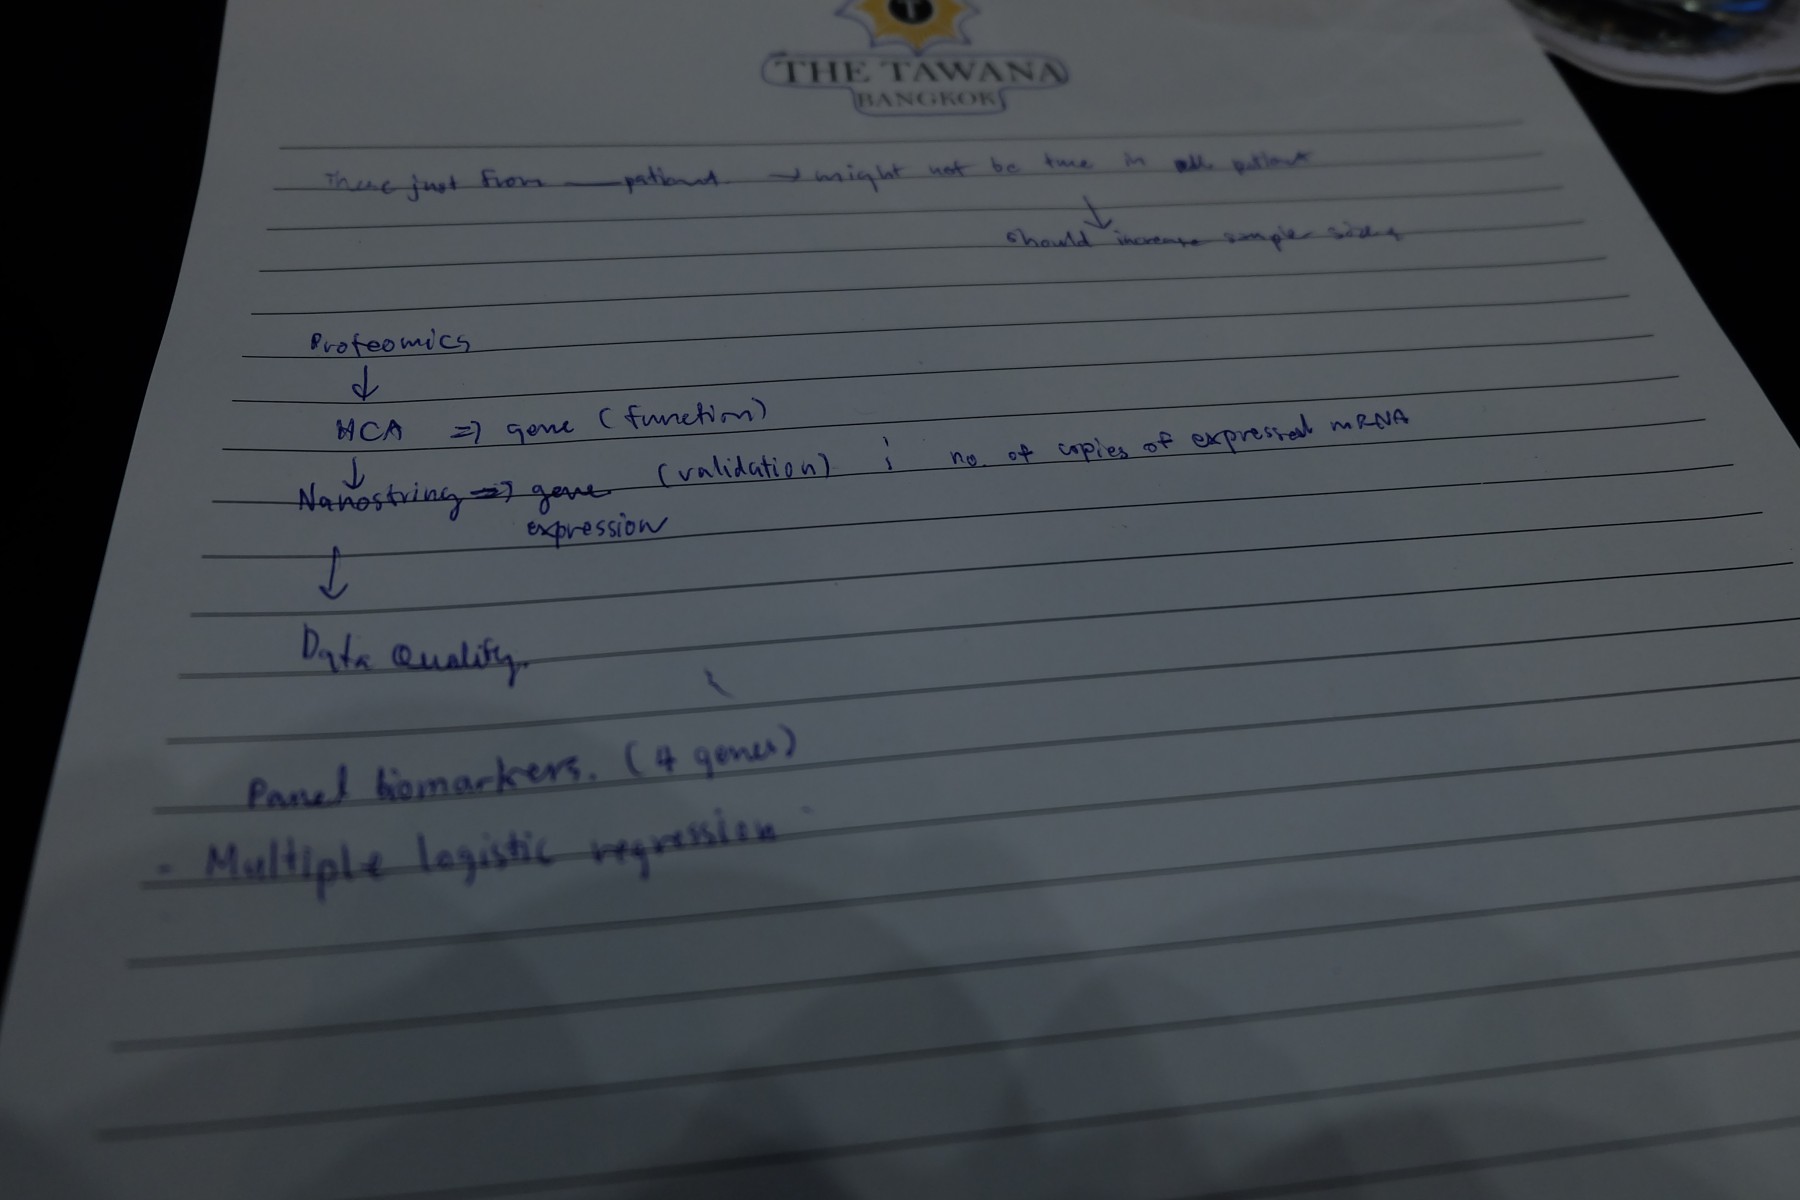 T
THE TAWANA
BANGKOK
These just from —— patient → might not be true in all patient
↓
should increase sample size
Proteomics
↓
HCA => gene (function)
↓
Nanostring => gene (validation) ; no. of copies of expressed mRNA
expression
↓
Data Quality.
Panel biomarkers. (4 genes)
- Multiple logistic regression